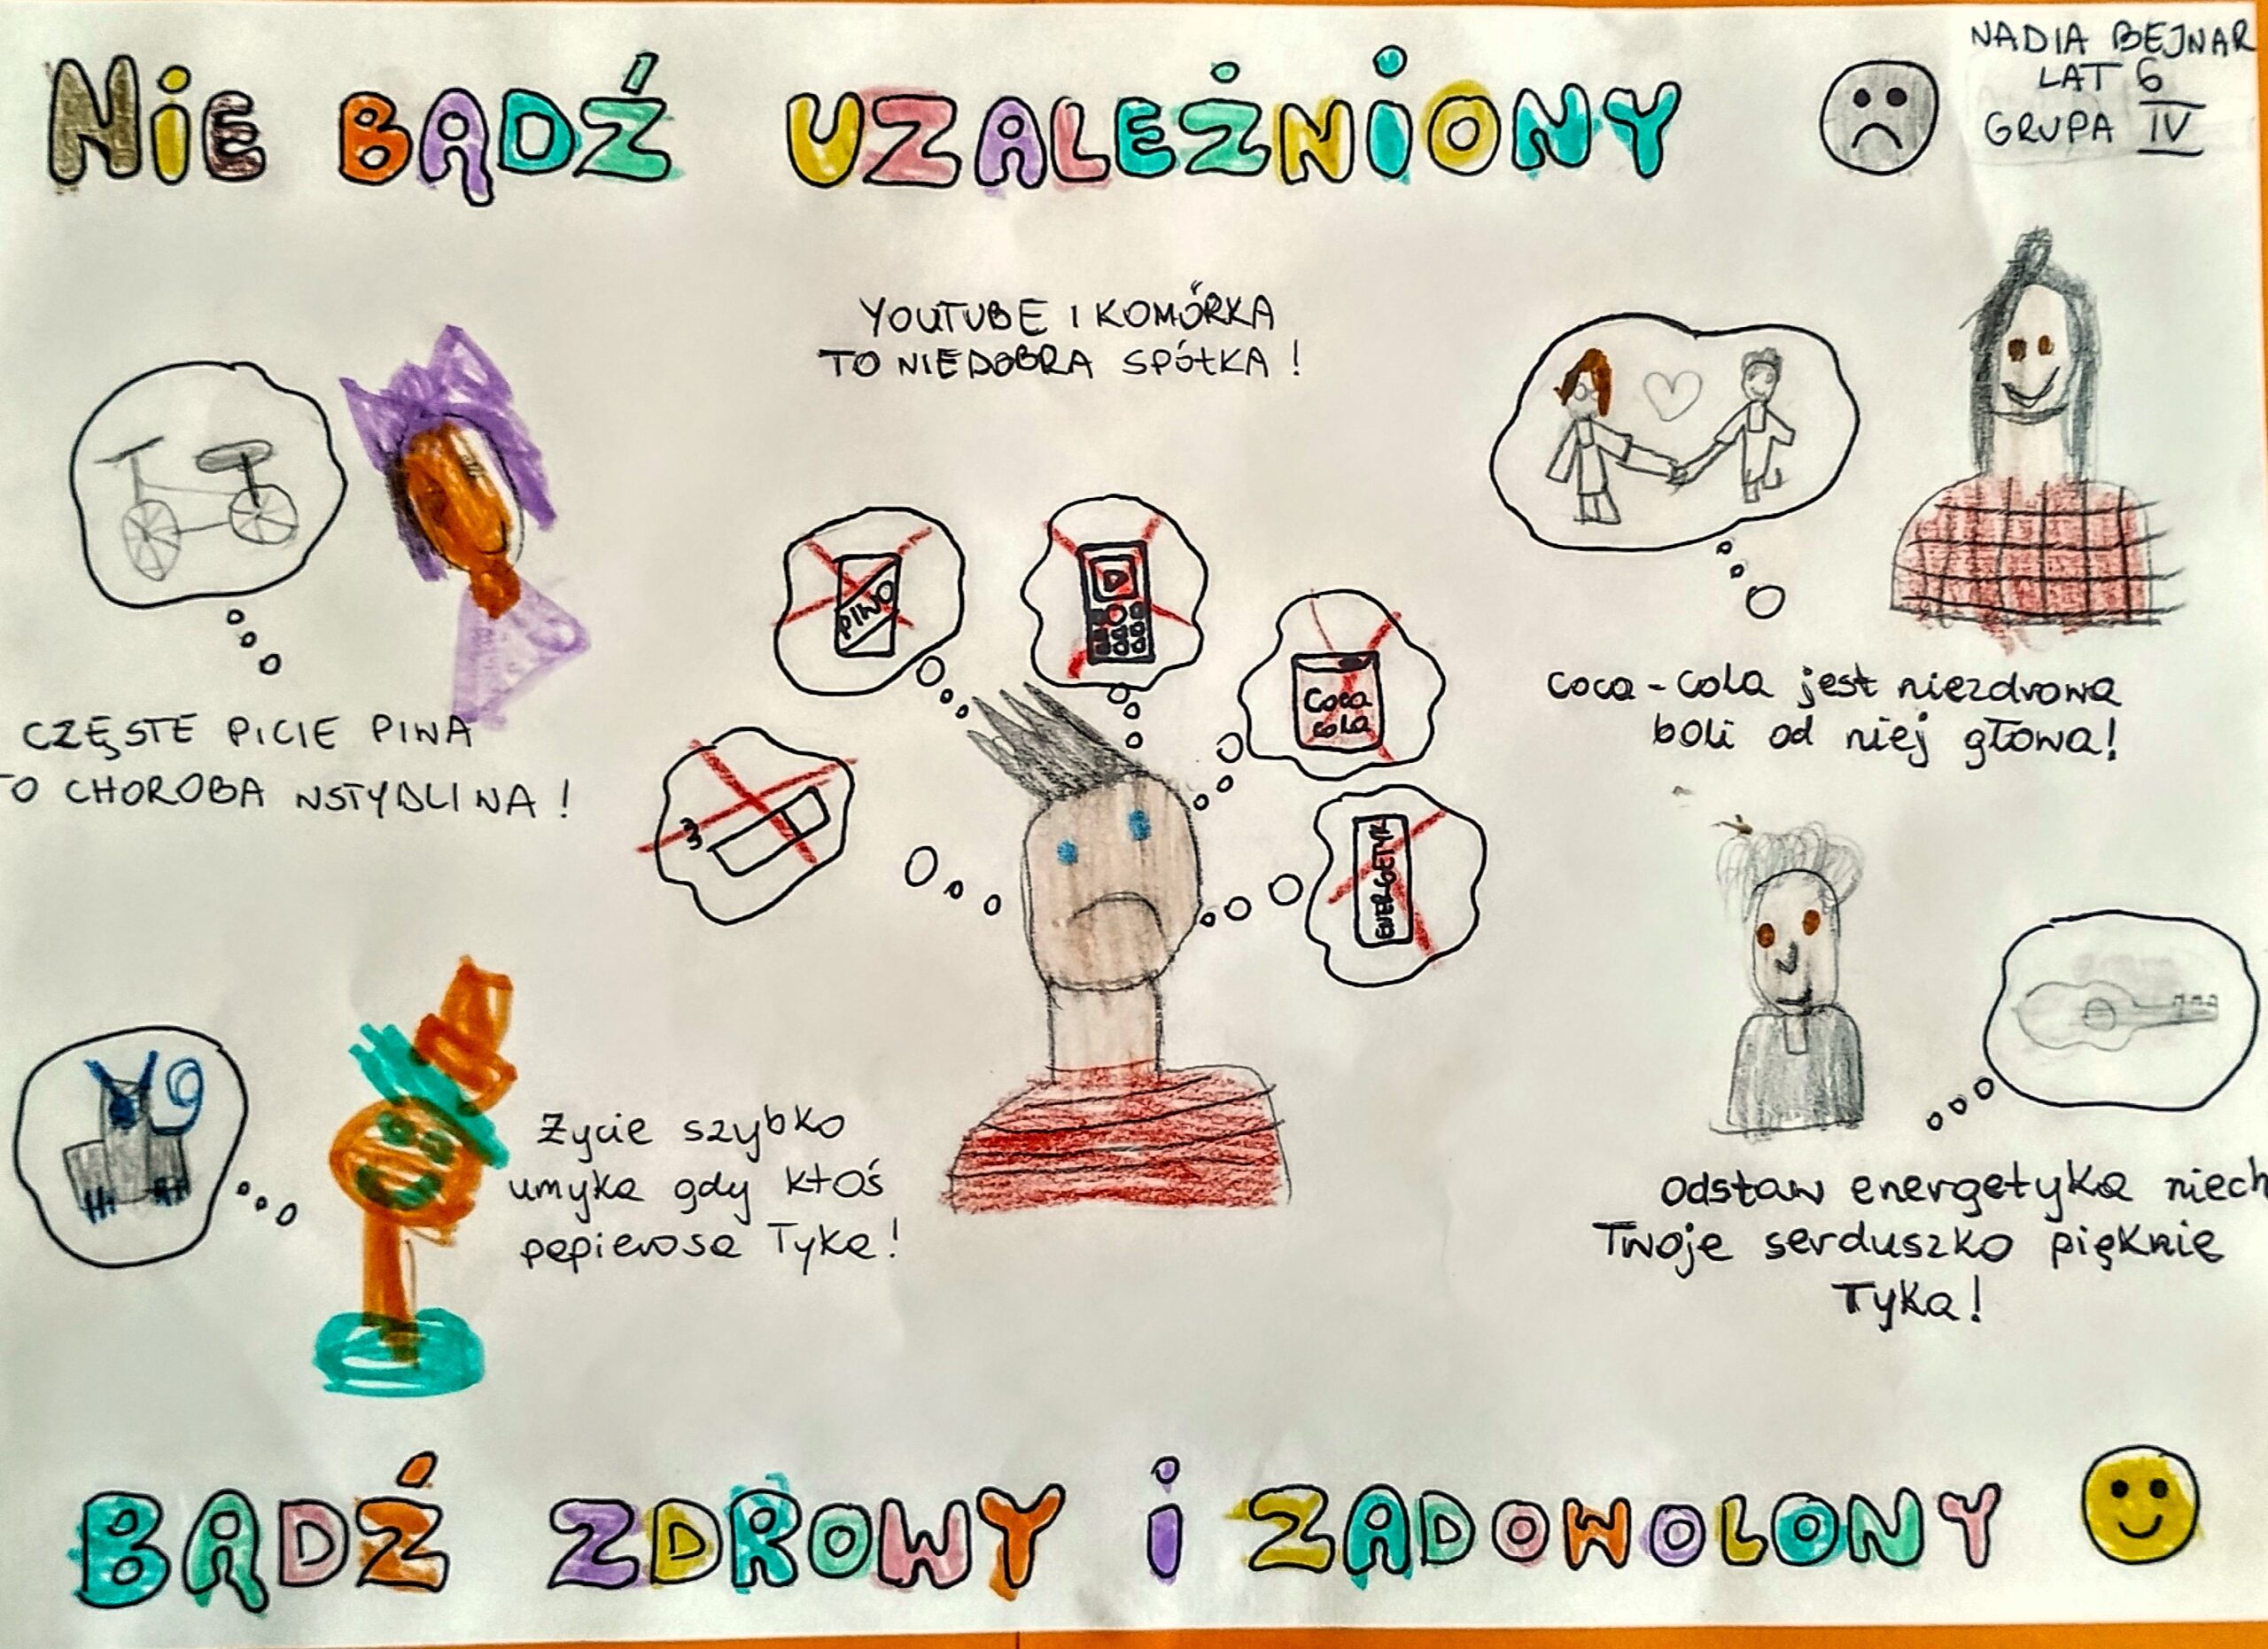 NiE BĄDŹ UZALEŻNIONY
NADIA BEJNAR
LAT 6
GRUPA IV
YOUTUBE I KOMÓRKA
TO NIEDOBRA SPÓŁKA!
PIWO
Coca
cola
ENERGETYK
CZĘSTE PICIE PIWA
TO CHOROBA WSTYDLIWA!
coca-cola jest niezdrowa
boli od niej głowa!
Życie szybko
umyka gdy ktoś
papierosa Tyka!
Odstaw energetyka niech
Twoje serduszko pięknie
Tyka!
BĄDŹ ZDROWY i ZADOWOLONY